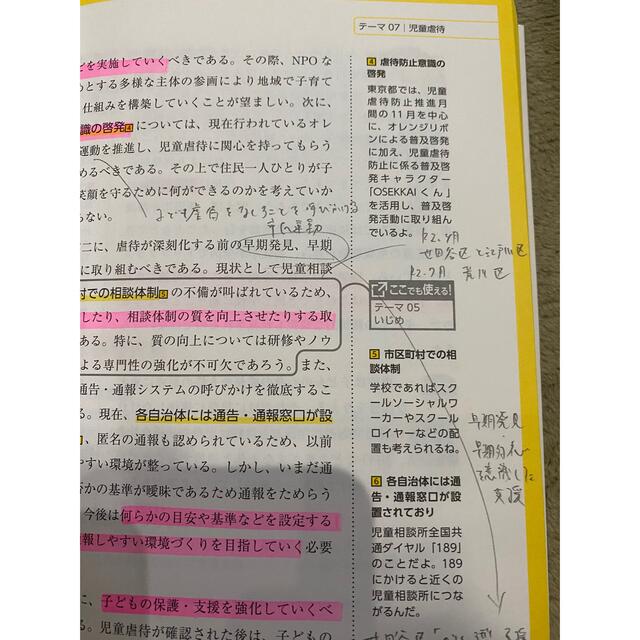 テーマ 07｜児童虐待
どを実施していくべきである。その際、NPOな
めとする多様な主体の参画により地域で子育て
仕組みを構築していくことが望ましい。次に、
識の啓発4については、現在行われているオレ
運動を推進し、児童虐待に関心を持ってもらう
めるべきである。その上で住民一人ひとりが子
笑顔を守るために何ができるのかを考えていか
らない。
子ども虐待をなくすことを呼びかける
市民運動
二に、虐待が深刻化する前の早期発見、早期
に取り組むべきである。現状として児童相談
村での相談体制5の不備が叫ばれているため、
したり、相談体制の質を向上させたりする取
ある。特に、質の向上については研修やノウ
よる専門性の強化が不可欠であろう。また、
通告・通報システムの呼びかけを徹底するこ
る。現在、各自治体には通告・通報窓口が設
、匿名の通報も認められているため、以前
やすい環境が整っている。しかし、いまだ通
否かの基準が曖昧であるため通報をためらう
今後は何らかの目安や基準などを設定する
報しやすい環境づくりを目指していく必要
に、子どもの保護・支援を強化していくべ
る。児童虐待が確認された後は、子どもの
4 虐待防止意識の
啓発
東京都では、児童
虐待防止推進月
間の11月を中心
に、オレンジリボ
ンによる普及啓発
に加え、児童虐待
防止に係る普及啓
発キャラクター
「OSEKKAIくん」
を活用し、普及啓
発活動に取り組ん
でいるよ。
R2.4月
世田谷区と江戸川区
R2.7月 荒川区
ここでも使える!
テーマ 05
いじめ
5 市区町村での相
談体制
学校であればスク
ールソーシャルワ
ーカーやスクール
ロイヤーなどの配
置も考えられるね。
早期発見
早期対応
意識した
支援
6 各自治体には通
告・通報窓口が設
置されており
児童相談所全国共
通ダイヤル「189」
のことだよ。189
にかけると近くの
児童相談所につな
がるんだ。
世田谷区